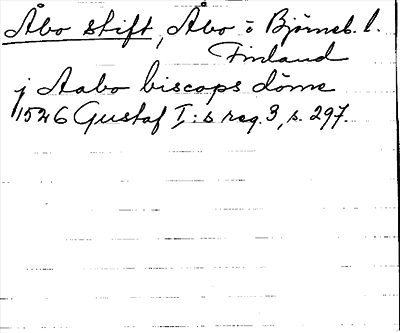 Åbo stift, Åbo o Björneb. l.
Finland
j Aabo biscops döme
1546 Gustaf I:s reg. 3, s. 297.